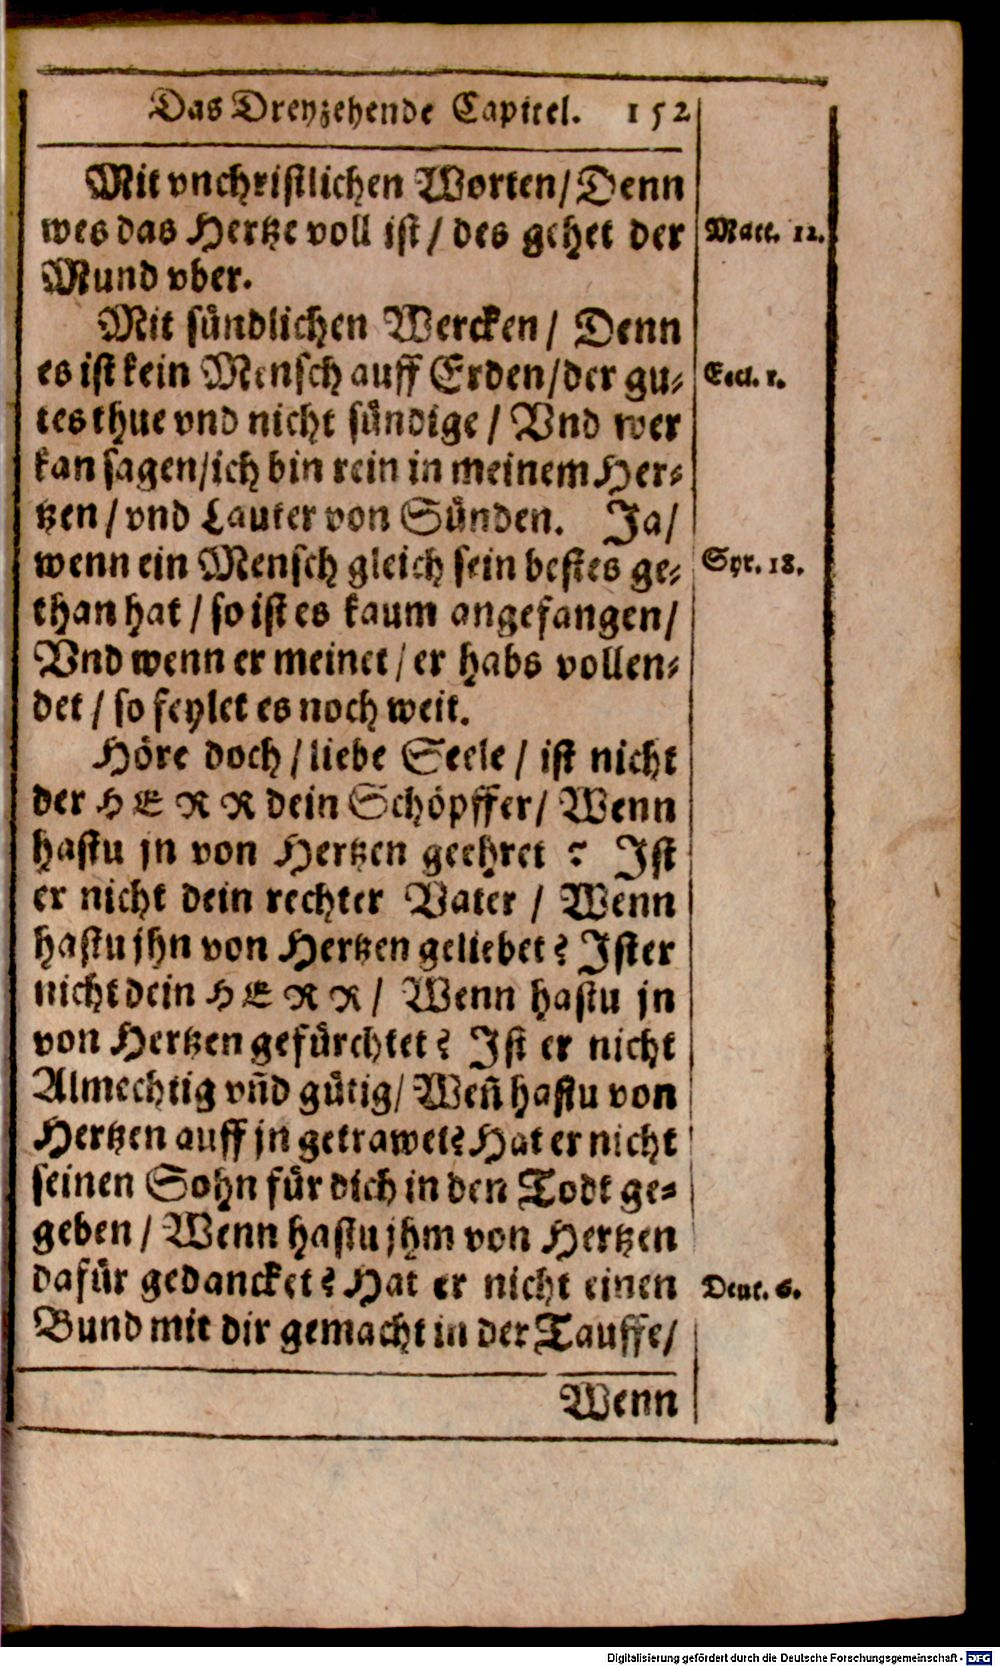 Das Dreyzehende Capitel. 152
Mit vnchristlichen Worten/Denn
wes das Hertze voll ist / des gehet der
Matt. 12.
Mund vber.
Mit sündlichen Wercken / Denn
es ist kein Mensch auff Erden/der gu-
Eccl. r.
tes thue vnd nicht sündige / Vnd wer
kan sagen/ich bin rein in meinem Her-
tzen / vnd Lauter von Sünden. Ja/
wenn ein Mensch gleich sein bestes ge-
Syr. 18.
than hat / so ist es kaum angefangen/
Vnd wenn er meinet / er habs vollen-
det / so feylet es noch weit.
Höre doch / liebe Seele / ist nicht
der HERR dein Schöpffer/ Wenn
hastu jn von Hertzen geehret ? Ist
er nicht dein rechter Vater / Wenn
hastu jhn von Hertzen geliebet? Ist er
nicht dein HERR/ Wenn hastu jn
von Hertzen gefürchtet? Ist er nicht
Almechtig vñd gütig/ Weñ hastu von
Hertzen auff jn getrawet? Hat er nicht
seinen Sohn für dich in den Todt ge-
geben / Wenn hastu jhm von Hertzen
dafür gedancket? Hat er nicht einen
Deut. 6.
Bund mit dir gemacht in der Tauffe/
Wenn
Digitalisierung gefördert durch die Deutsche Forschungsgemeinschaft - DFG